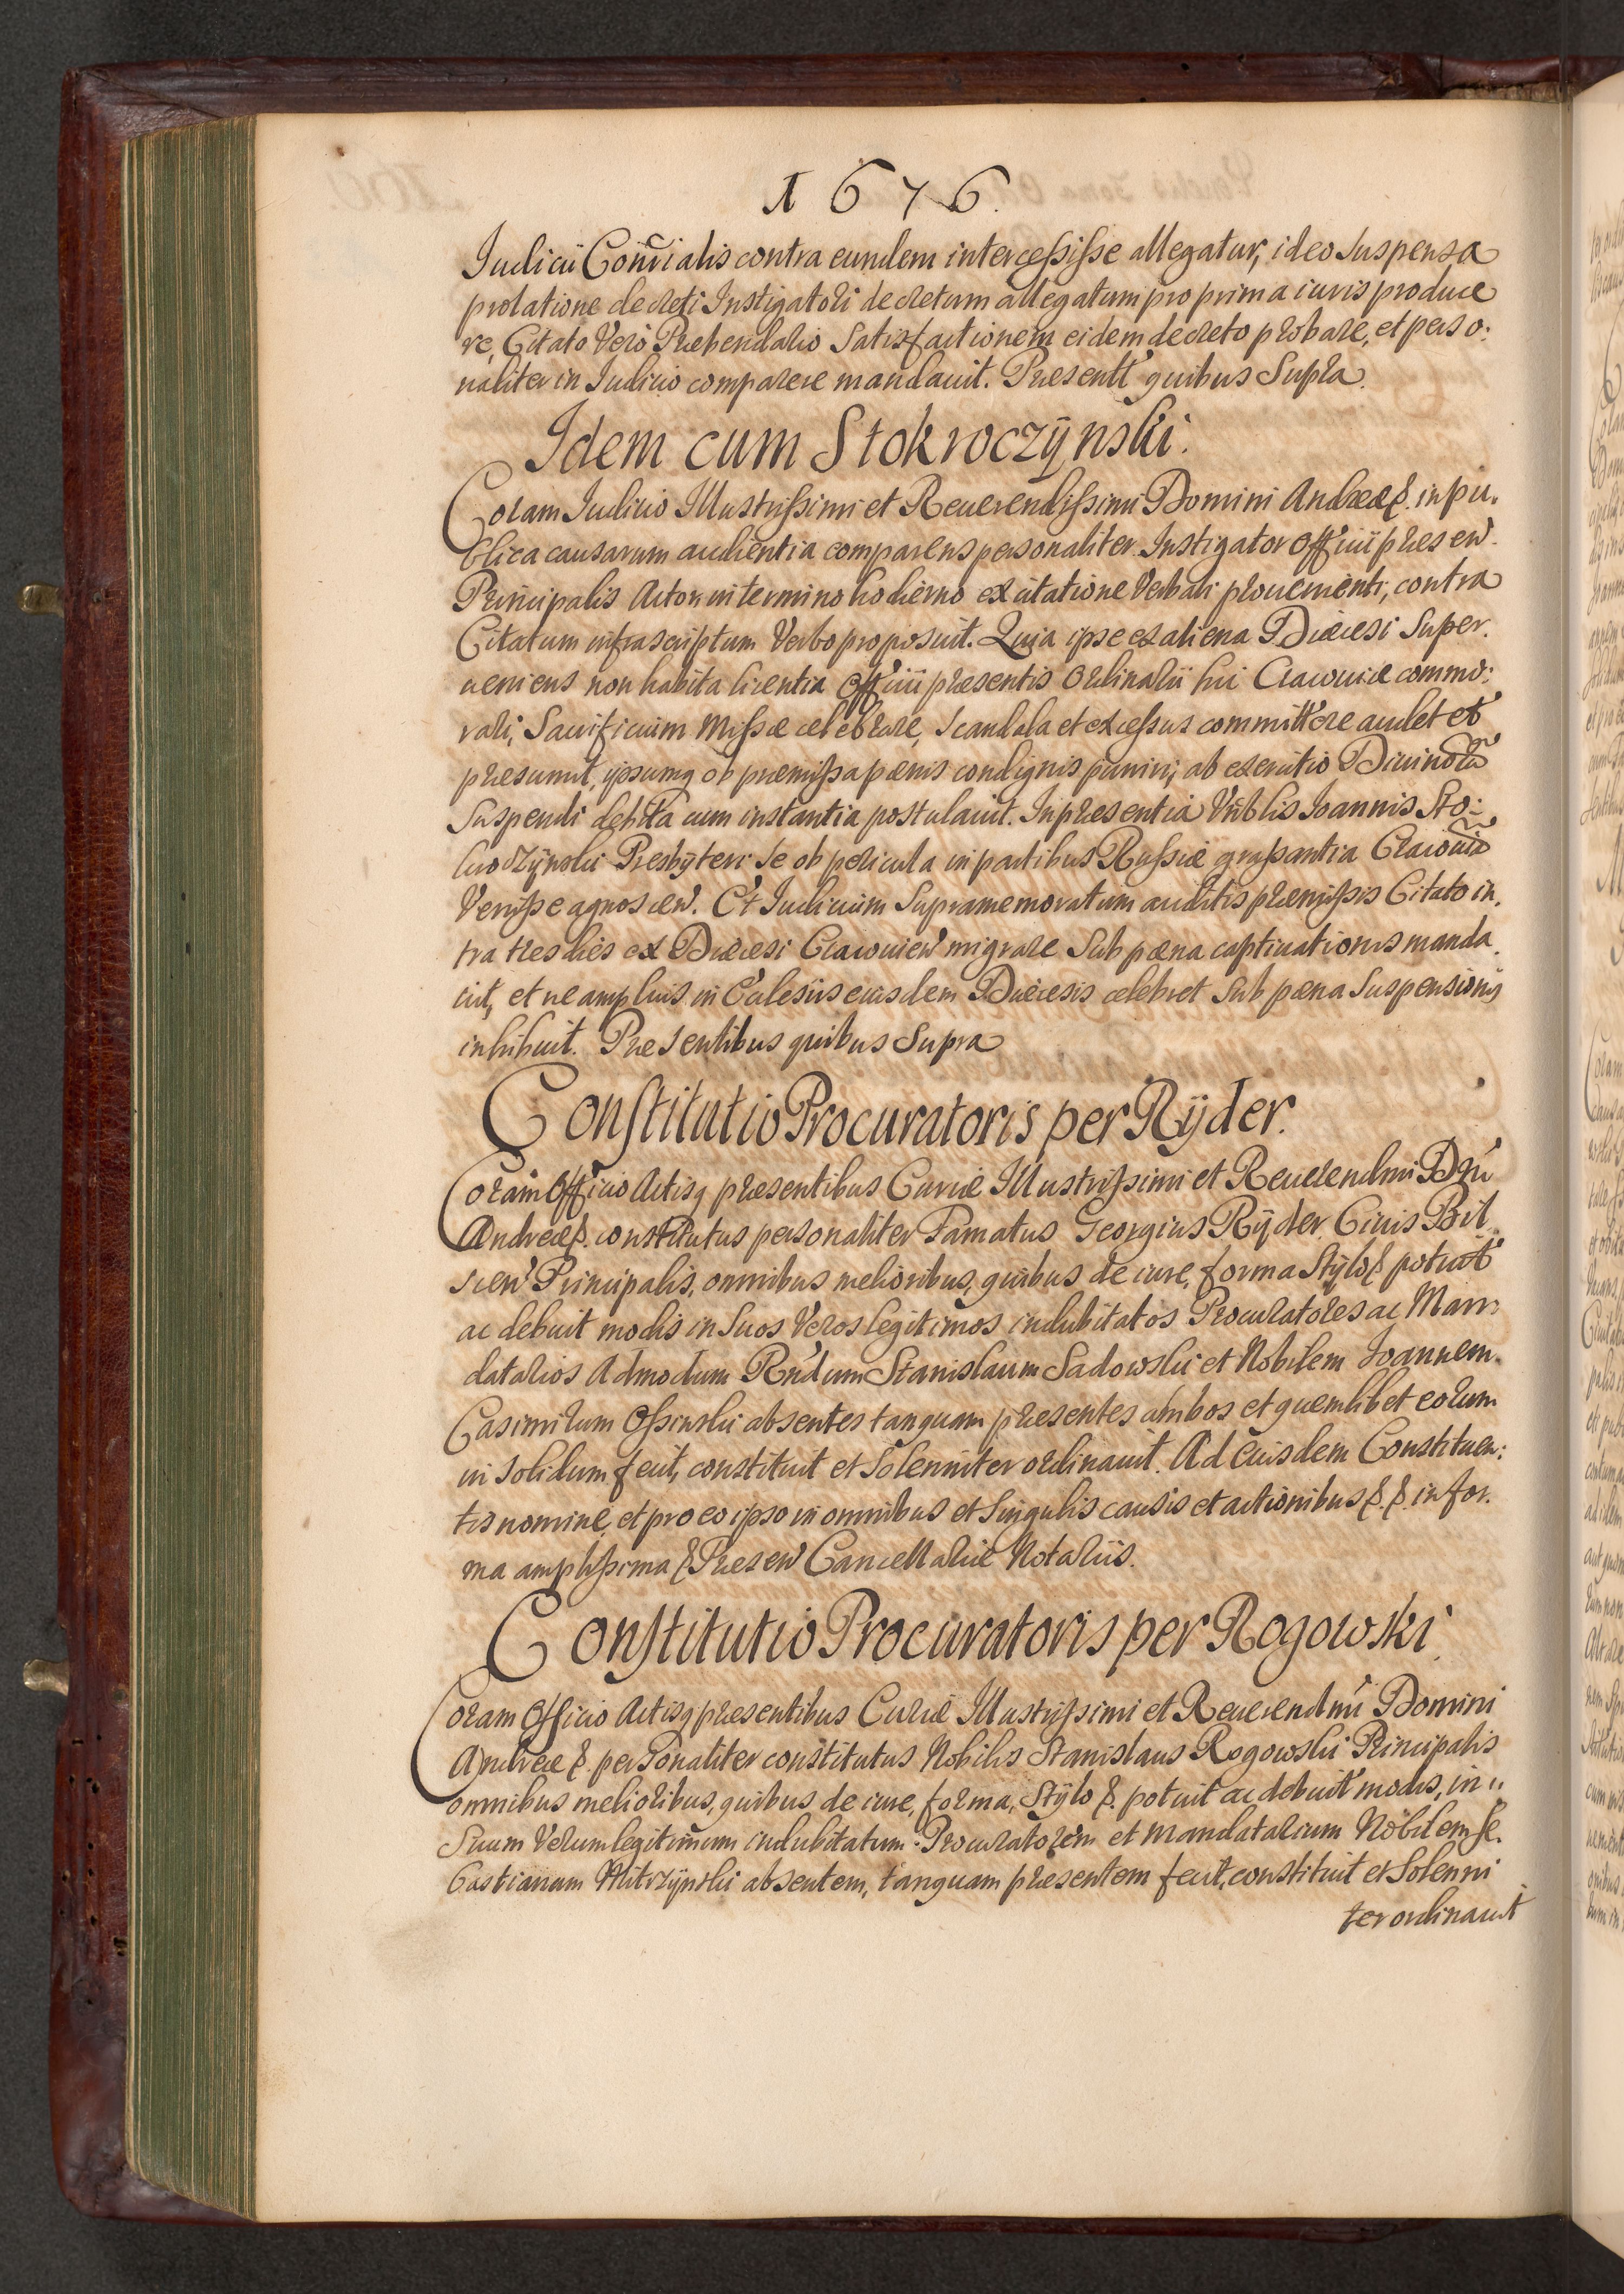 1676.
Iudicii Con̄rialis contra eundem intercessisse allegatur, ideo suspensa
prolatione decreti Instigatori decretum allegatum pro prima iuris produce
re, Citato Verò Præbendario Satisfactionem eidem decreto probare, et perso:
naliter in Iudicio comparere mandauit. Præsentt' quibus Supra.
Idem cum Stokwoczÿnski.
Coram Iudicio Illustrissimi et Reuerendissimi Domini Andreæ &. in pu,
blica causarum audientia comparens personaliter Instigator Officii præsen'.
Principalis Actor in termino hodierno ex citatione Verbali proueniënti, contra
Citatum infrascriptum Verbo proposuit. Quia ipse ex aliena Diæcesi Super.
ueniens non habita licentia Officii præsentis Ordinarii hic Cracouiæ commo:
rari, Sacrificium Missæ celebrare, Scandala et excessus committere audet et
præsumit, ipsumq ob præmissa pænis condignis puniri, ab exercitio Diuinorū
Suspendi debita cum instantia postulauit. In præsentia Vn̄blis Ioannis Sto:
kwoczÿnski Presbÿteri se ob pericula in partibus Russiæ grassantia Cracouiā
Venisse agnoscen'. Et Iudicium Supramemoratum auditis præmissis Citato in,
tra tres dies ex Diæcesi Cracouien' migrare Sub pæna captiuationis manda
uit, et ne amplius in Ecclesiis eiusdem Diæcesis celebret Sub pæna Suspensionis
inhibuit. Præsentibus quibus Supra
Constitutio Procuratoris per Rÿder.
Coram Officio Actisq præsentibus Curiæ Illustrissimi et Reuerendmi Dn̄i
Andreæ &. constitutus personaliter Famatus Georgius Rÿder Ciuis Bil
scen' Principalis, omnibus melioribus, quibus de iure, forma Stÿlo & potuit
ac debuit modis in Suos Veros legitimos indubitatos Procuratores ac Man
datarios Admodum Rn̄dum Stanislaum Sadowski et Nobilem Ioannem.
Casimirum Ossinski absentes tanquam præsentes ambos et quemlibet eorum
in solidum fecit, constituit et Solenniter ordinauit. Ad Eiusdem Constituen:
tis nomine, et pro eo ipso in omnibus et Singulis causis et actionibus &. &. in for.
ma amplissima & Præsen' Cancellariæ Notariis.
Constitutio Procuratoris per Rogowski.
Coram Officio Actisq præsentibus Curiæ Illustrissimi et Reuerendmi Domini
Andreæ &. personaliter constitutus Nobilis Stanislaus Rogowski Principalis
omnibus melioribus, quibus de iure, forma, Stÿlo &. potuit ac debuit modis, in
Suum Verum legitimum indubitatum Procuratorem et Mandatarium Nobilem Se.
bastianum absentem, tanquam præsentem fecit, constituit et Solenni
ter ordinauit